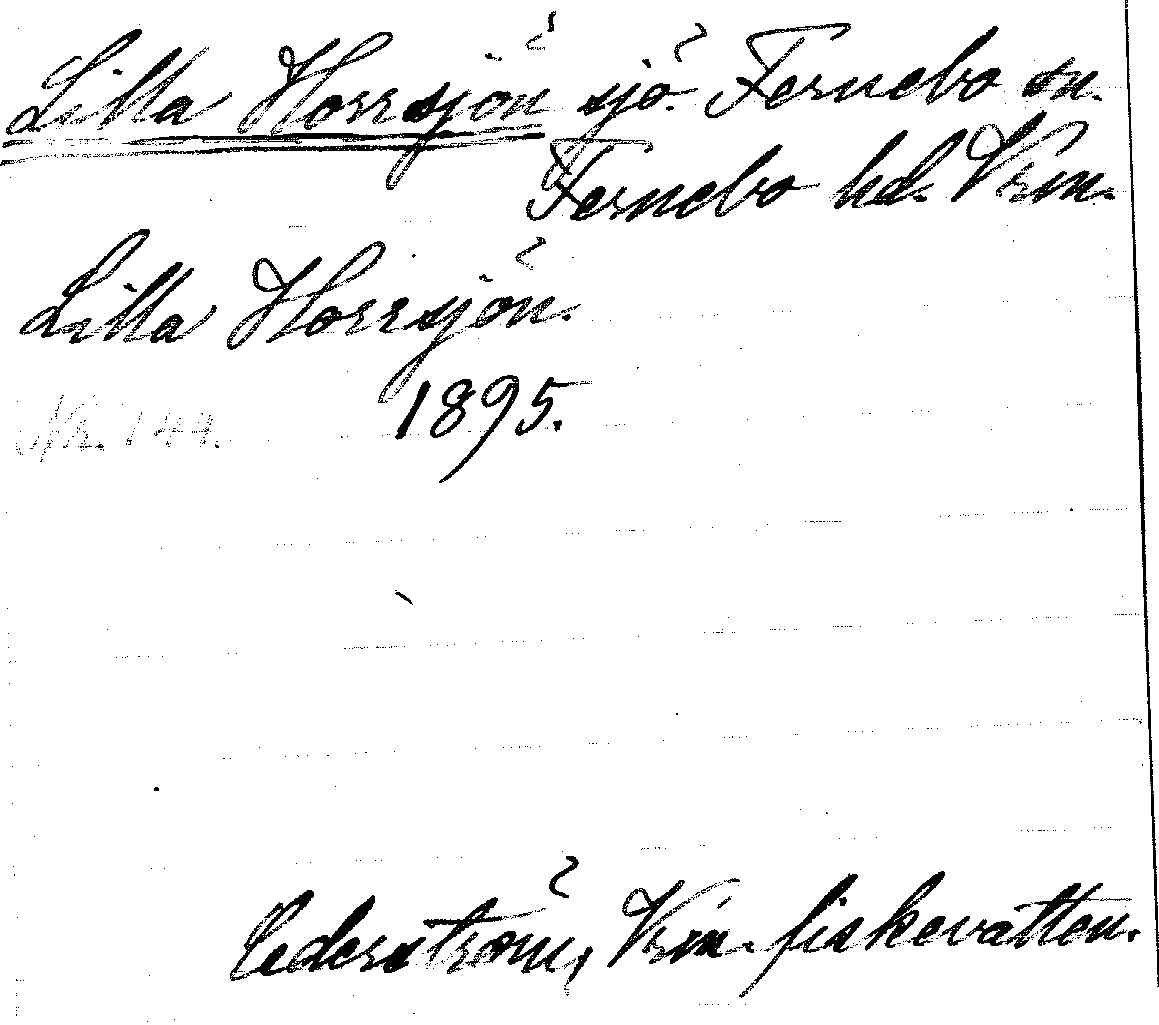 Lilla Horrsjön sjö. Fernebo sn.
Fernebo hd. Vrm.
Lilla Horrsjön.
1895.
Nr. 144.
Cederström, Vrm. fiskevatten.